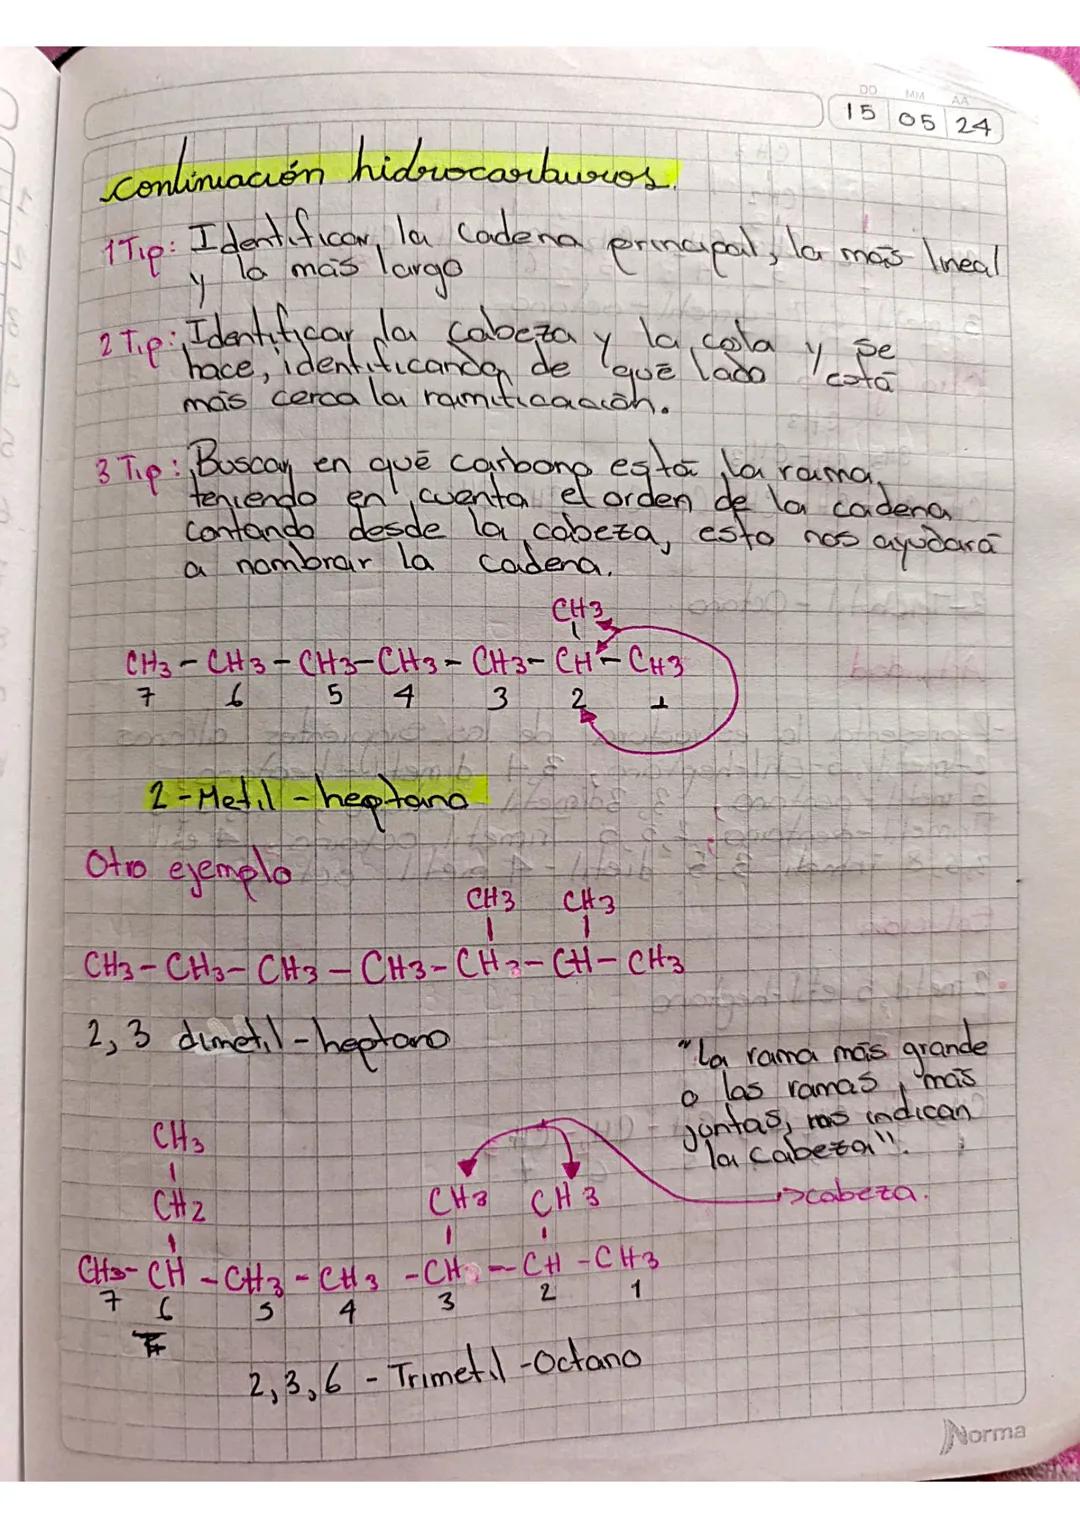 DD MM AA
15 05 24
continuación hidrocarburos.
1 Tip: Identificar, la cadena principal, la más lineal
y la más largo
2 Tip: Identificar la cabeza y la cola y se
hace, identificando de qué lado está
más cerca la ramificación.
3 Tip: Buscar en qué carbono está la rama,
teniendo en cuenta el orden de la cadena
contando desde la cabeza, esto nos ayudará
a nombrar la cadena.
CH3
CH3 - CH3 - CH3 - CH3 - CH3 - CH - CH3
7 6 5 4 3 2 1
2 - Metil - heptano
Otro ejemplo
CH3 CH3
CH3 - CH3 - CH3 - CH3 - CH3 - CH - CH3
2, 3 dimetil - heptano
"La rama más grande
o las ramas, más
juntas, nos indican
la cabeza".
CH3
CH2
CH3 CH3
cabeza.
CH3 - CH - CH3 - CH3 - CH - CH - CH3
7 6 5 4 3 2 1
2, 3, 6 - Trimetil - Octano
Norma